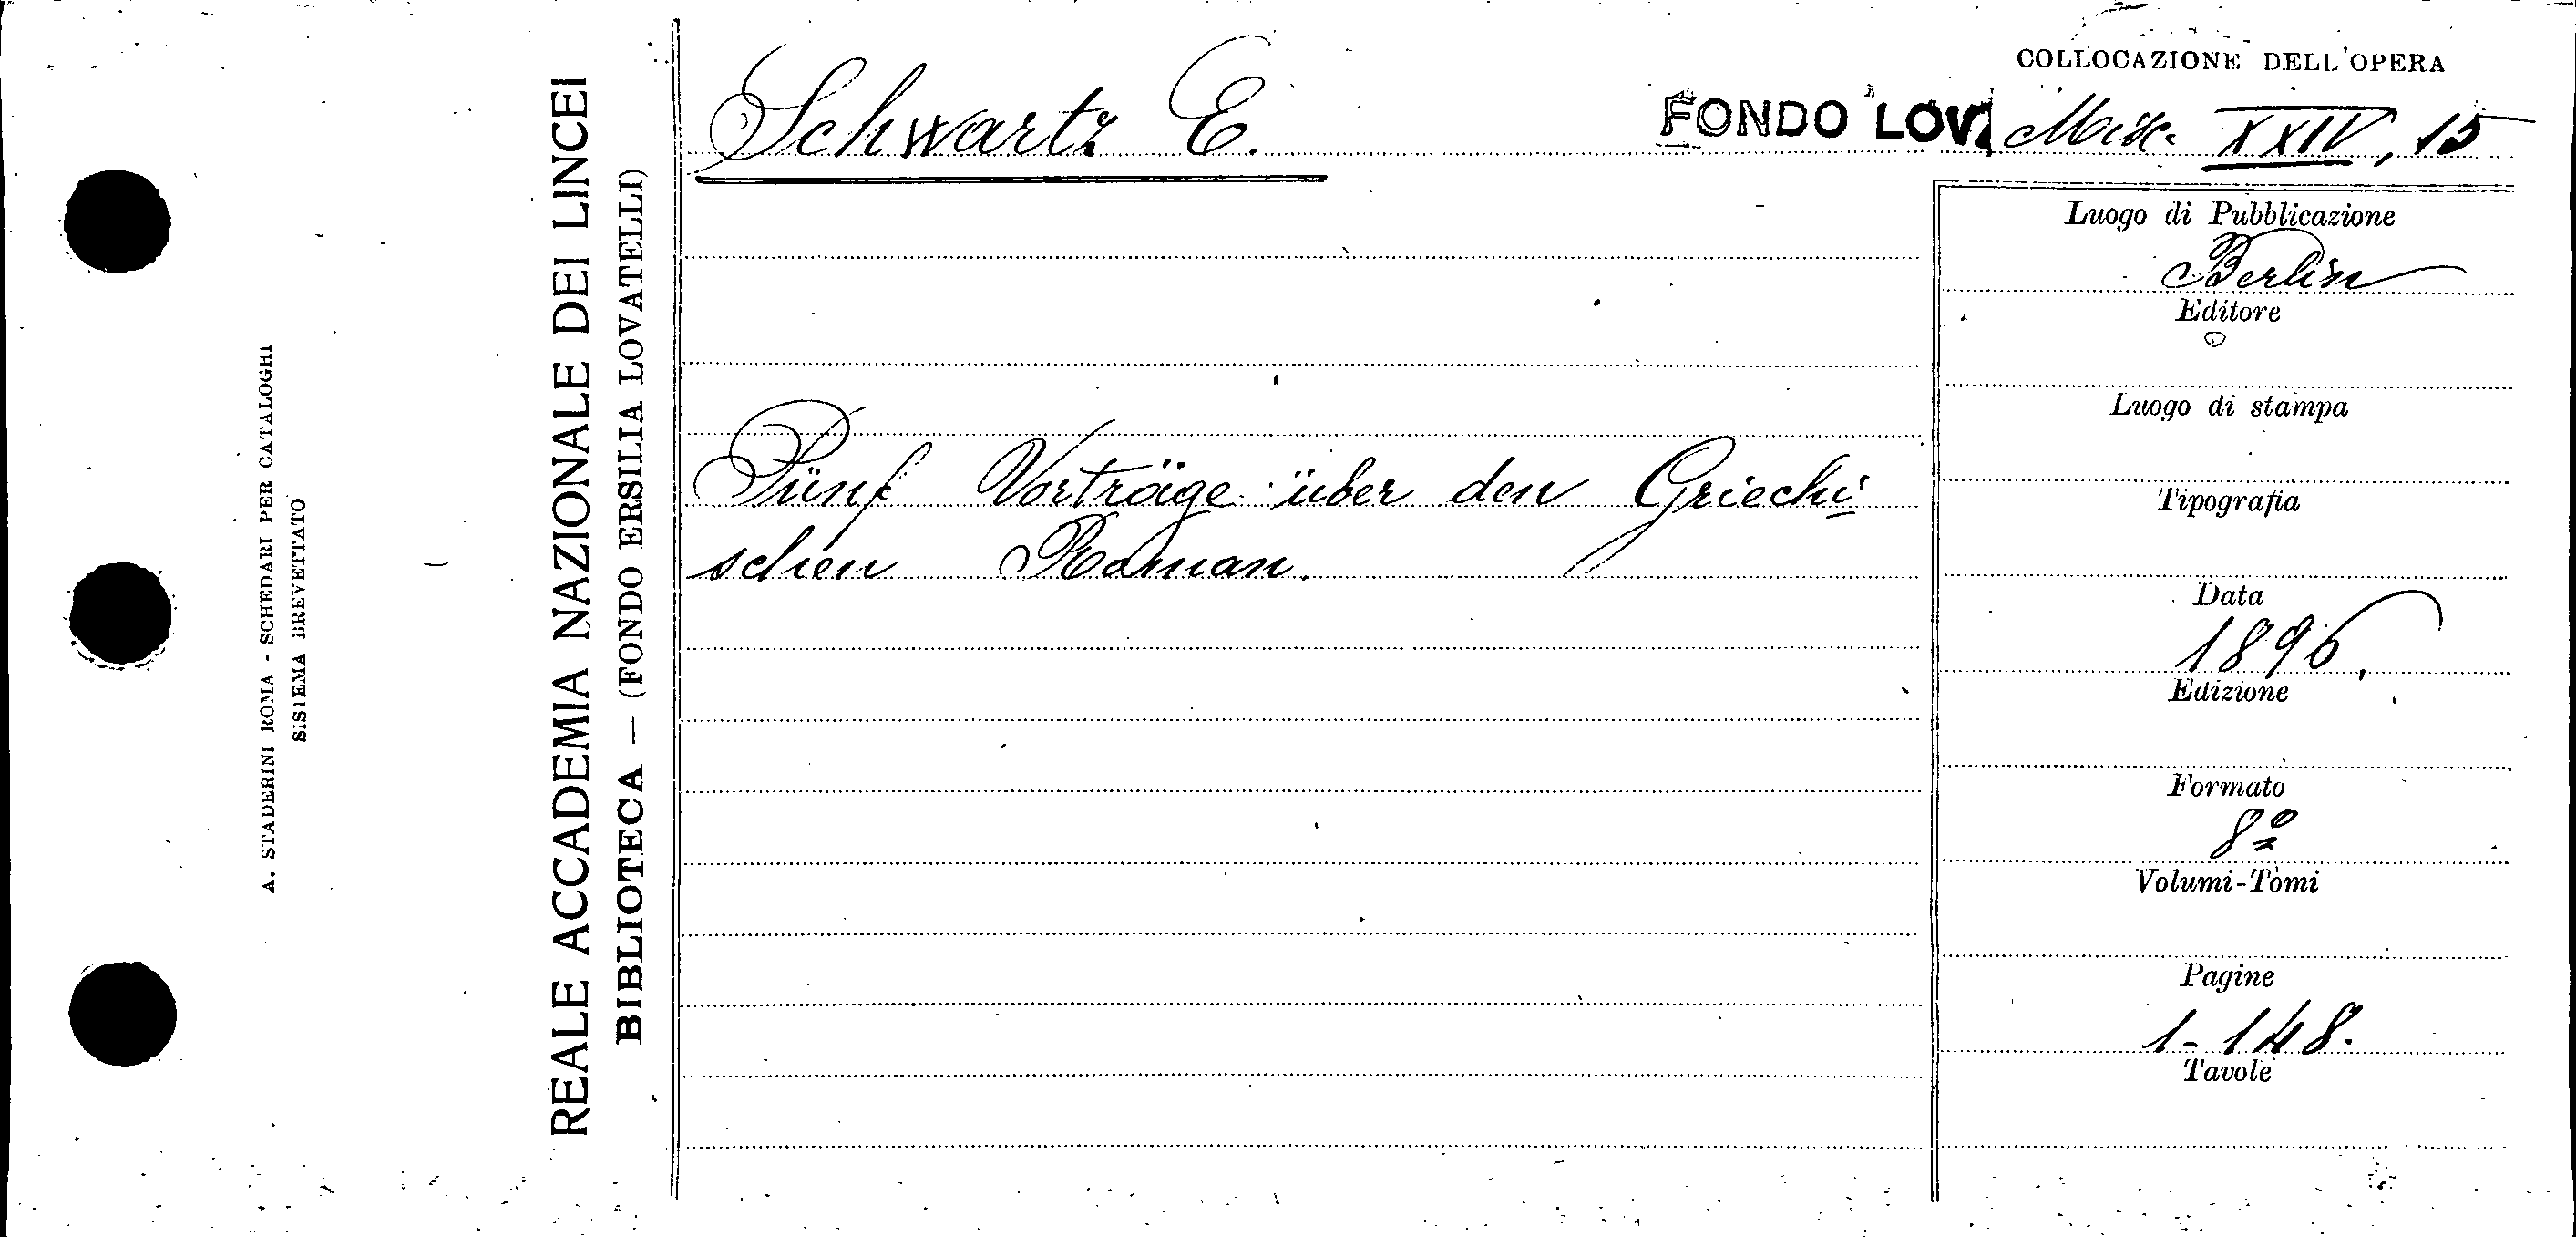 COLLOCAZIONE DELL'OPERA
Schwartz E.
FONDO LOV. Misc. XXIV, 15
Luogo di Pubblicazione
Berlin
Editore
Luogo di stampa
Fünf Vorträge über den Griechi-
schen Roman.
Tipografia
Data
1896.
Edizione
Formato
8º
Volumi-Tomi
Pagine
1-148.
Tavole
REALE ACCADEMIA NAZIONALE DEI LINCEI
BIBLIOTECA — (FONDO ERSILIA LOVATELLI)
A. STADERINI ROMA - SCHEDARI PER CATALOGHI
SISTEMA BREVETTATO